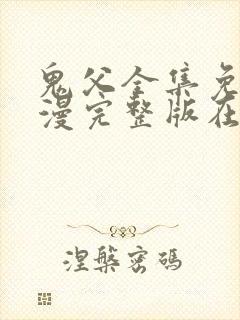 鬼父全集免
漫完整版在
涅槃密码